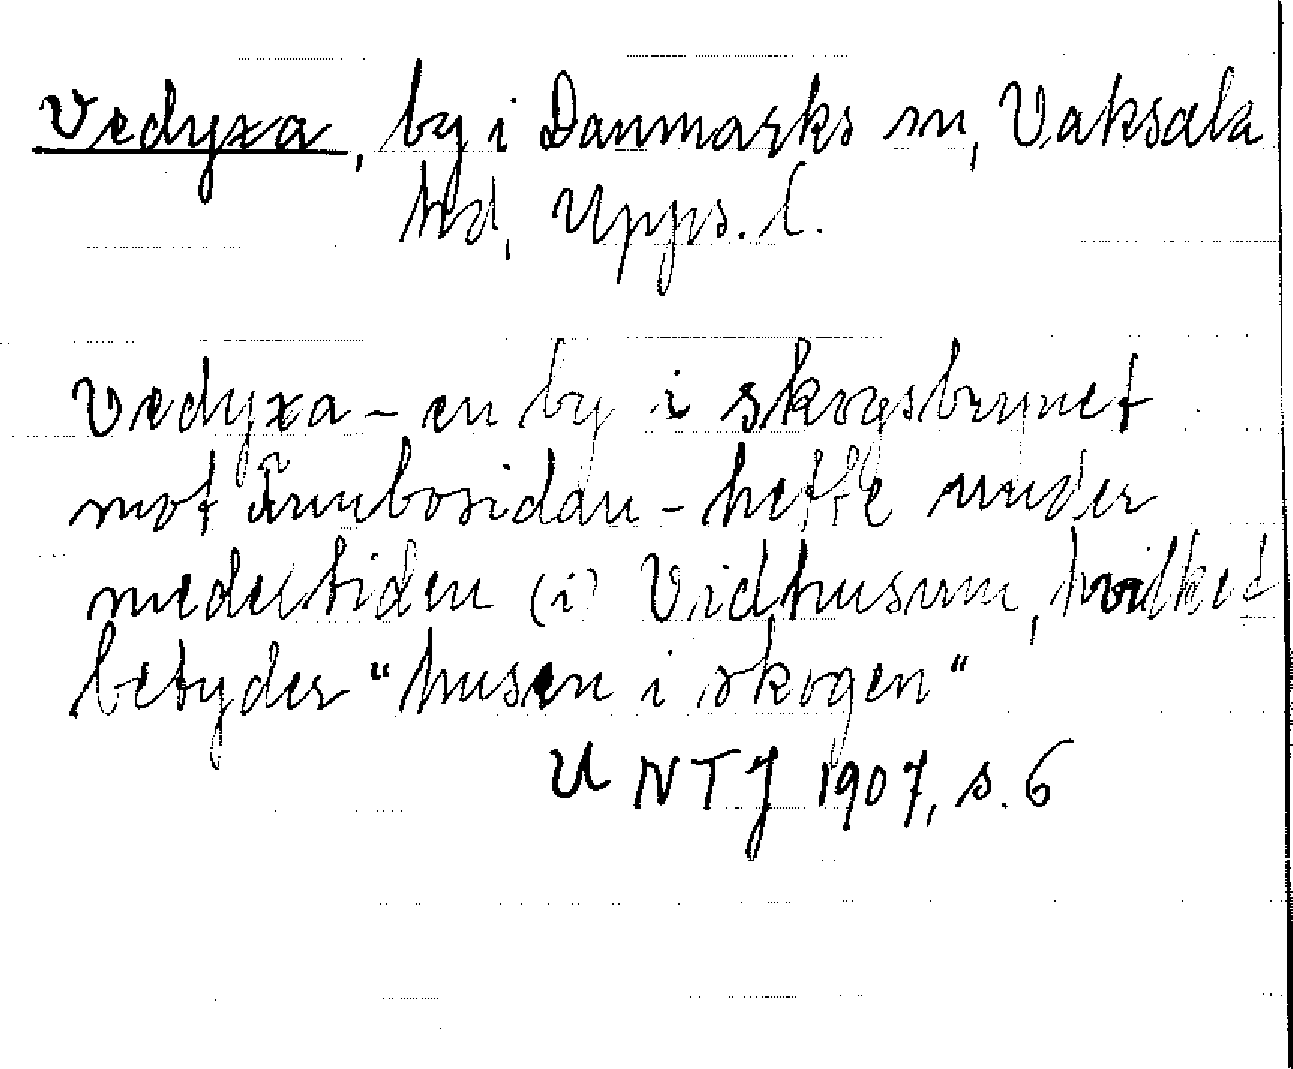 Vedyxa, by i Danmarks sn, Vaksala
hd, Upps. l.
Vedyxa – en by i skogsbrynet
mot Funbosidan – hette under
medeltiden (i) Vidhusum, hvilket
betyder "husen i skogen"
UNTJ 1907, s. 6